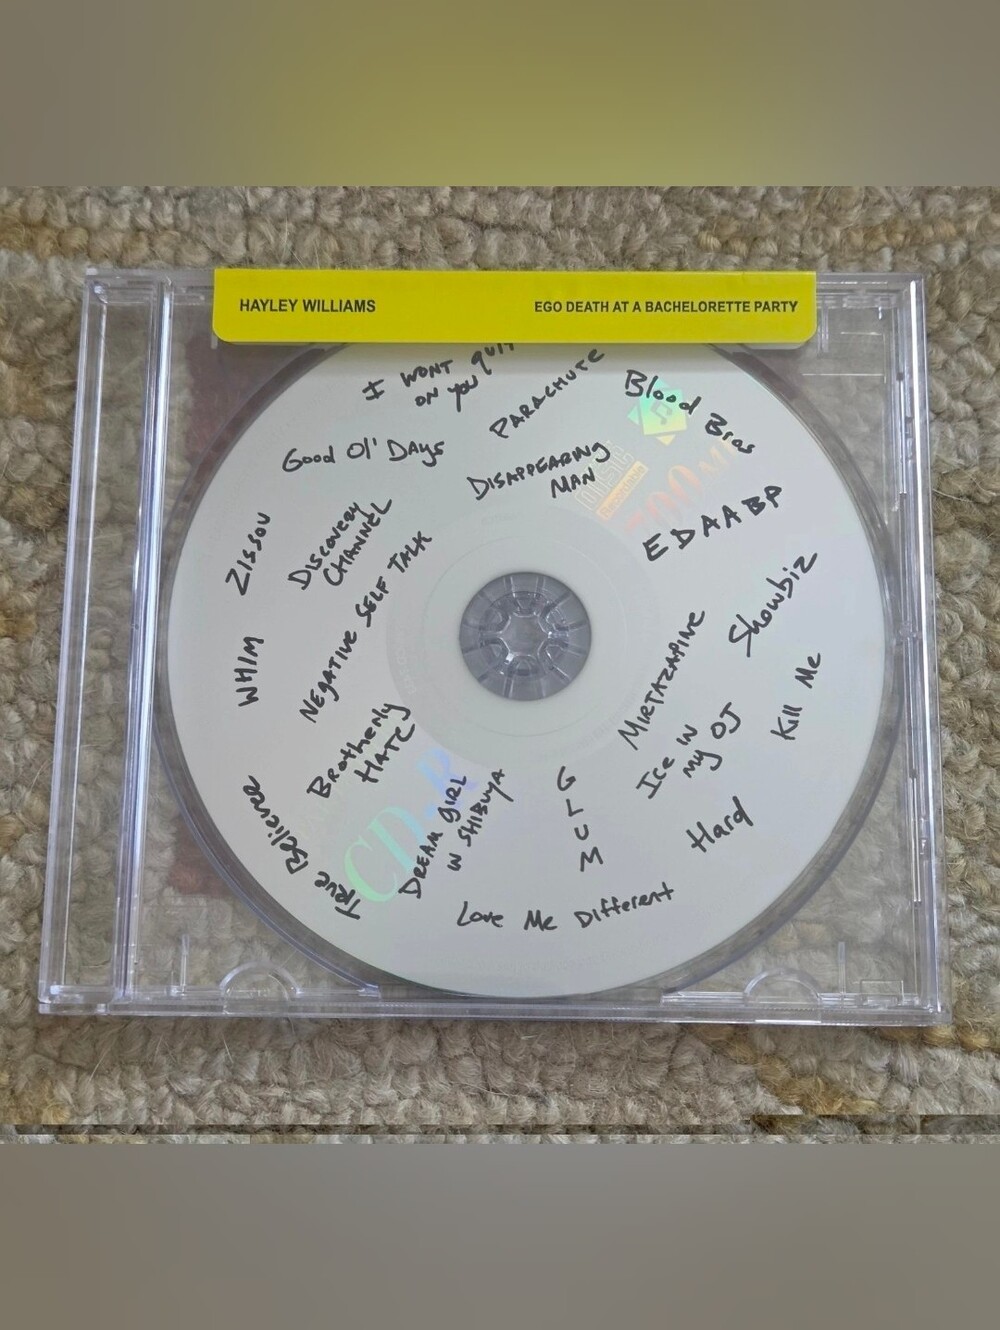 HAYLEY WILLIAMS
EGO DEATH AT A BACHELORETTE PARTY
I WONT QUIT
ON YOU
PARACHUTE
Blood Bros
Good Ol' Days
DISAPPEARING
MAN
EDAABP
ZISSOU
DISCOVERY
CHANNEL
NEGATIVE SELF TALK
Showbiz
WHIM
MIRTAZAPINE
Kill Me
Brotherly
HATE
Ice in
my OJ
True Believer
DREAM GIRL
IN SHIBUYA
GLUM
Hard
Love Me Different
CD-R
DISC
Recordable
700MB